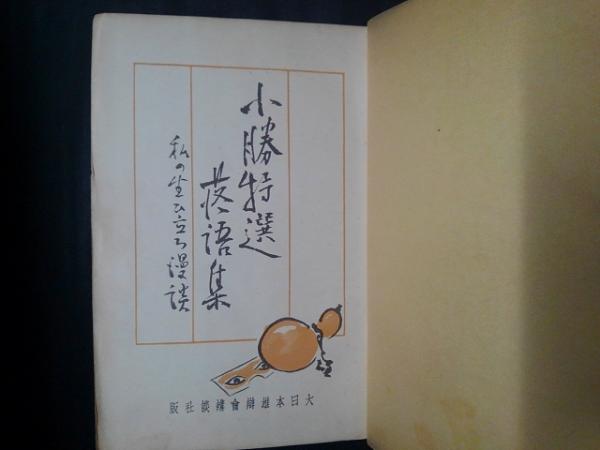 小勝特選
落語集
私の生ひ立ち漫談
大日本雄辯會講談社版